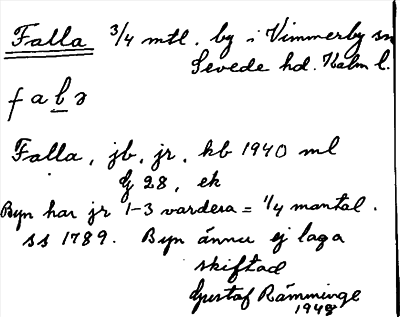 Falla 3/4 mtl. by i Vimmerby sn
Sevede hd. Kalm l.
f a l ə
Falla, jb, jr, kb 1940 ml
G 28, ek
Byn har jr 1-3 vardera = 1/4 mantal.
ss 1789. Byn ännu ej laga
skiftad
Gustaf Rämminge
1948